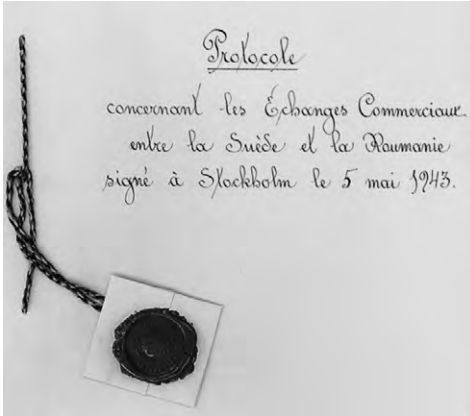 Protocole
concernant les Échanges Commerciaux
entre la Suède et la Roumanie
signé à Stockholm le 5 mai 1943.